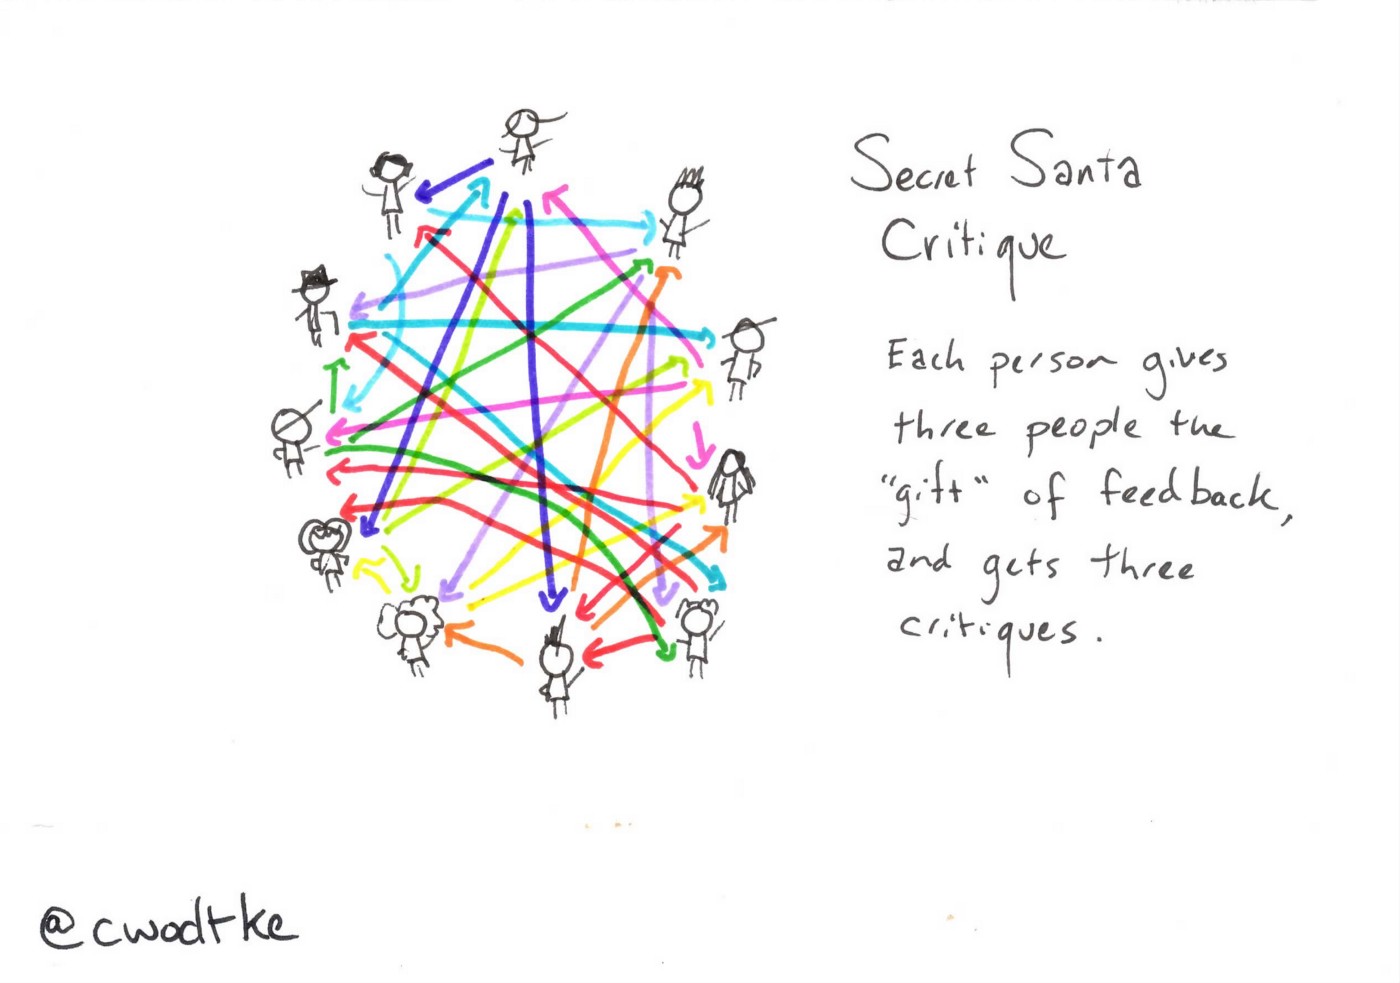 Secret Santa
Critique
Each person gives
three people the
"gift" of feedback,
and gets three
critiques.
@cwodtke